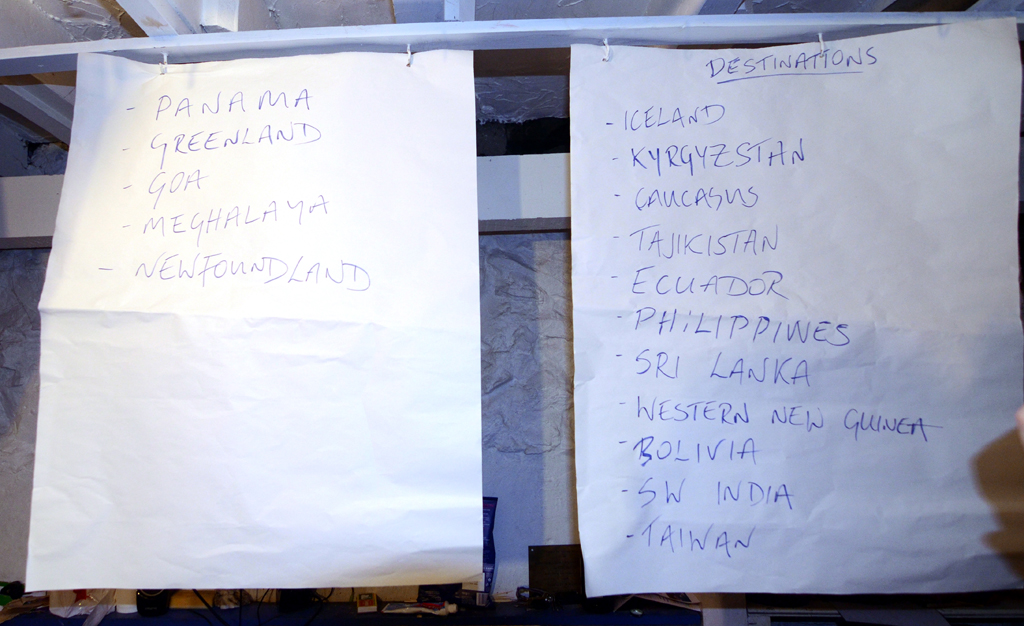 - PANAMA
- GREENLAND
- GOA
- MEGHALAYA
- NEWFOUNDLAND
DESTINATIONS
- ICELAND
- KYRGYZSTAN
- CAUCASUS
- TAJIKISTAN
- ECUADOR
- PHiLIPPINES
- SRI LANKA
- WESTERN NEW GUINEA
- BOLIVIA
- SW INDIA
- TAIWAN